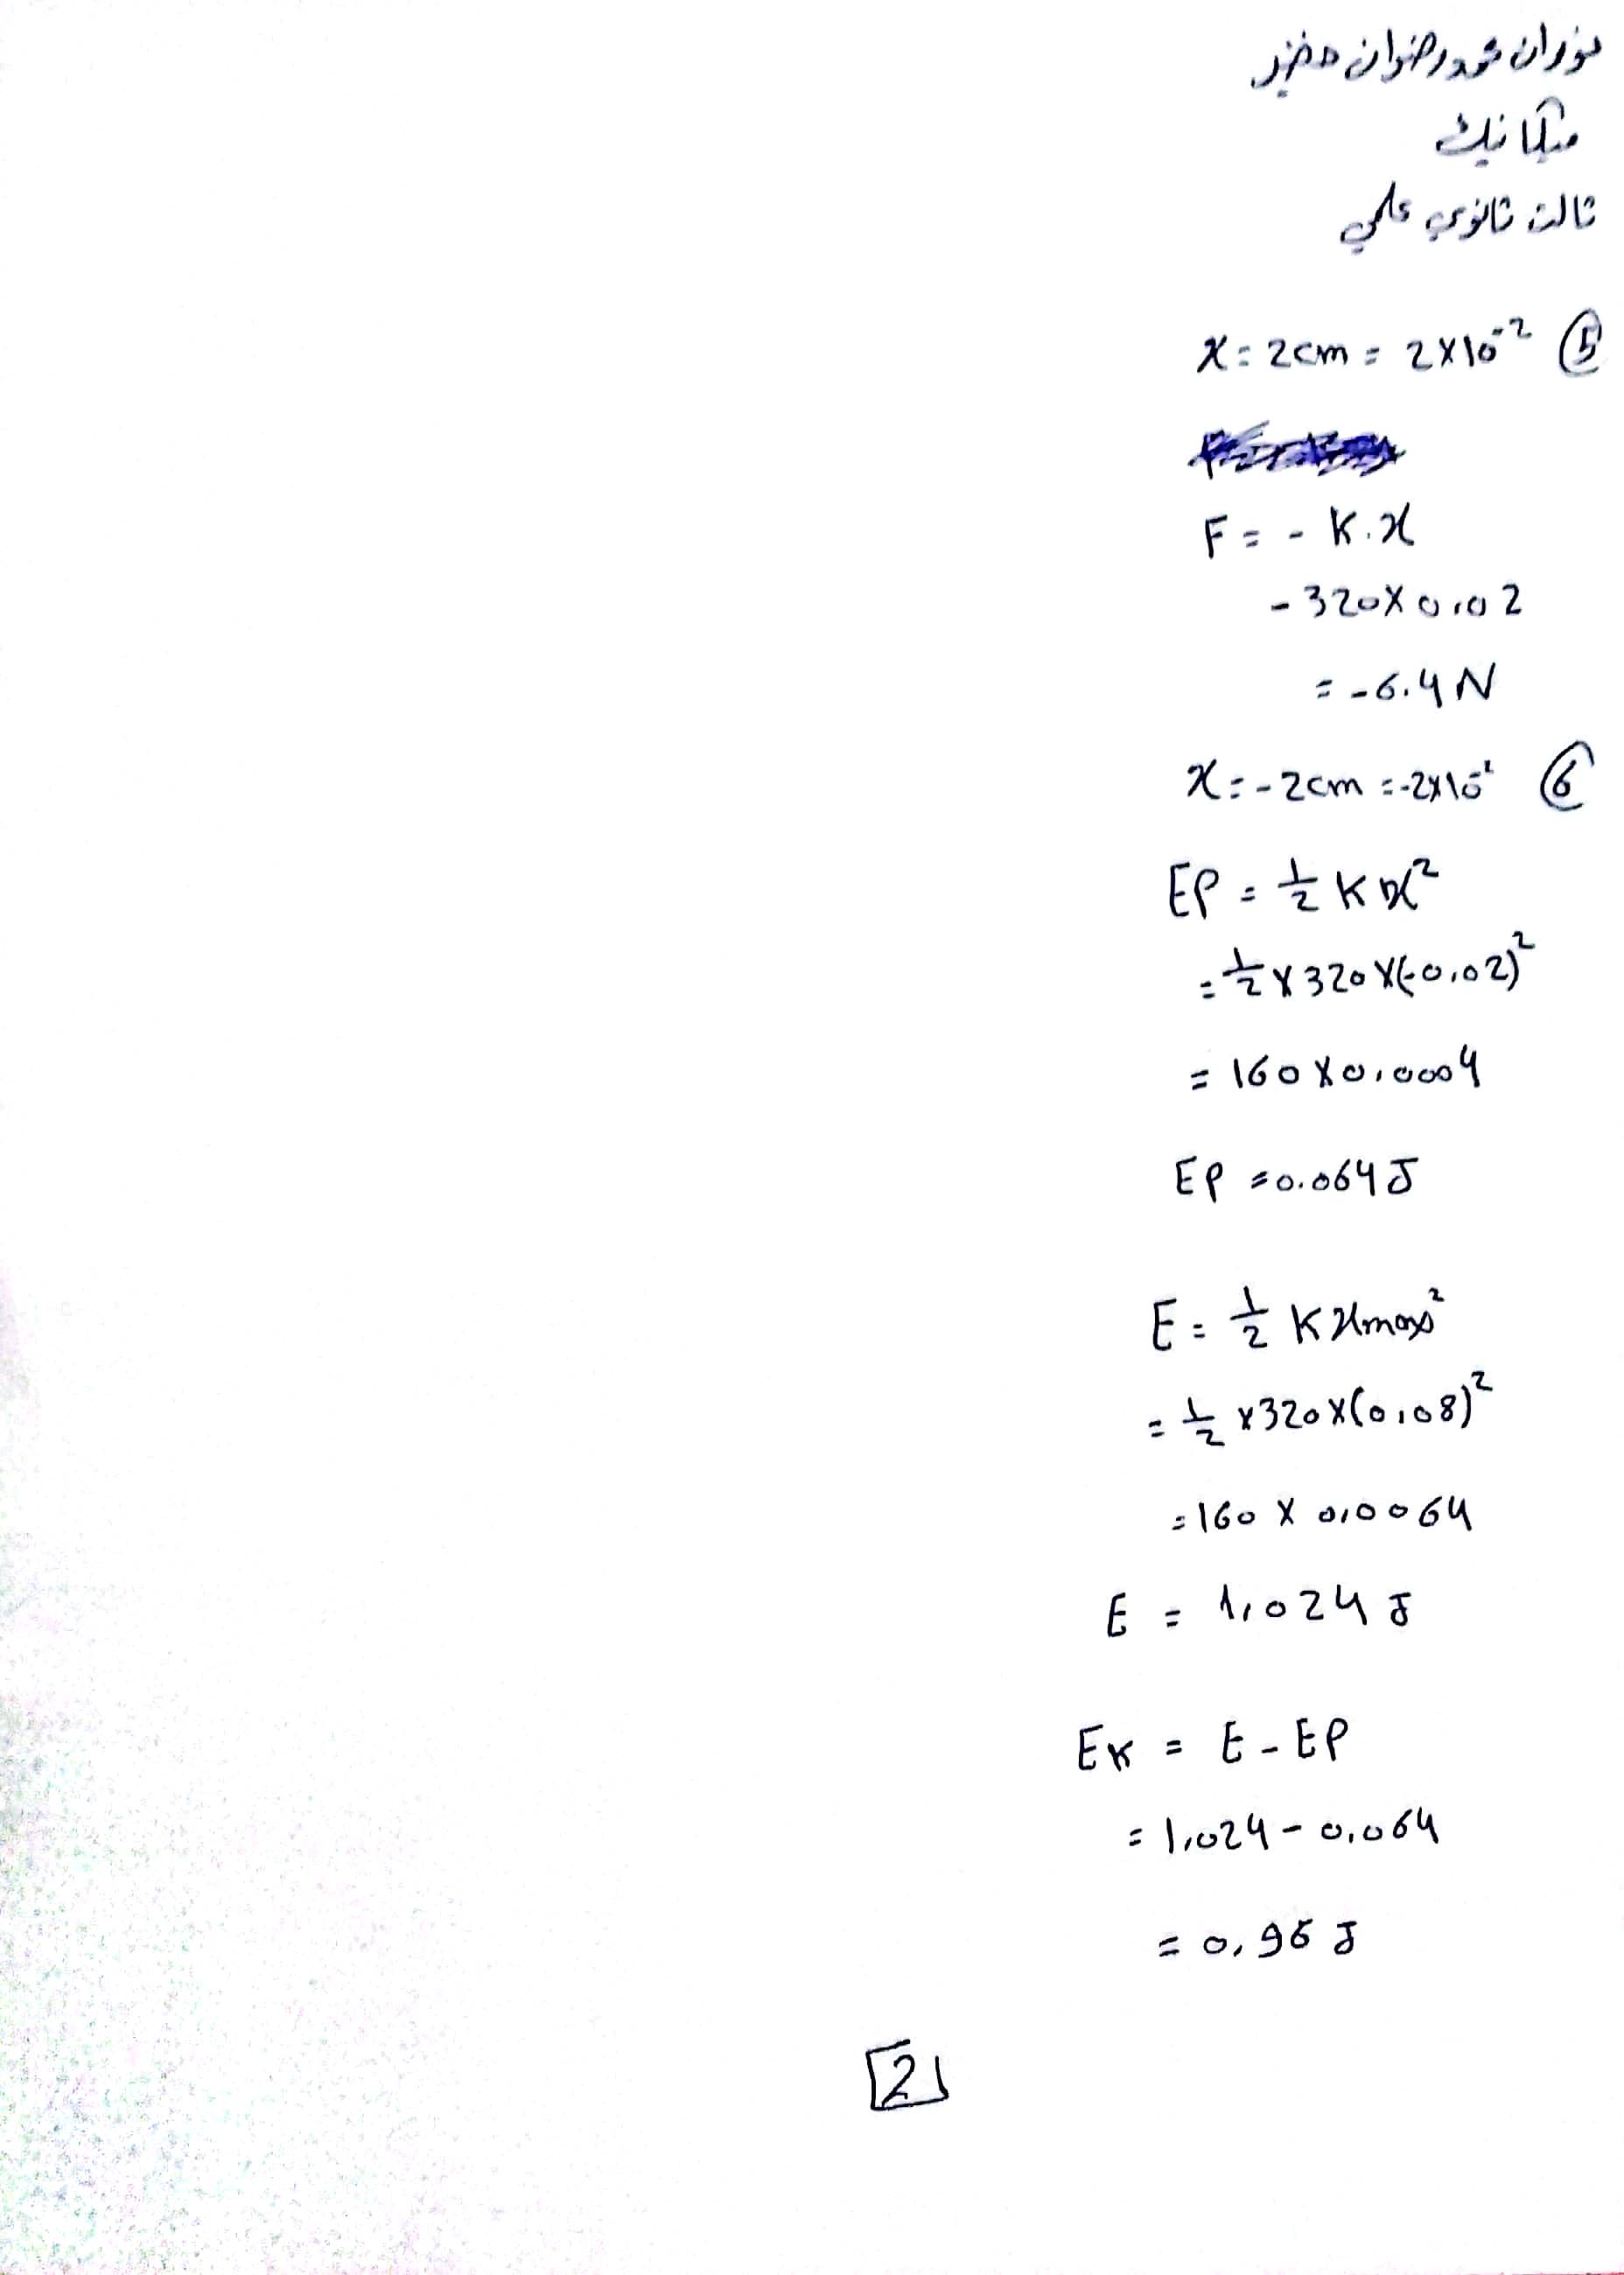 نوران محمد رضوان خضير
ميكانيك
ثالث ثانوي علمي
x = 2cm = 2×10^-2 (5)
F = - K.x
- 320×0,02
= -6.4 N
x = -2cm = -2×10^-2 (6)
EP = 1/2 K x^2
= 1/2 × 320 × (-0,02)^2
= 160 × 0,0004
EP = 0.064 J
E = 1/2 K xmax^2
= 1/2 × 320 × (0,08)^2
= 160 × 0,0064
E = 1,024 J
EK = E - EP
= 1,024 - 0,064
= 0,96 J
2